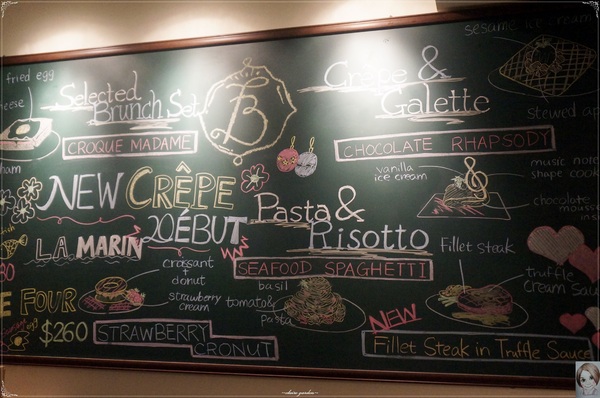 fried egg
cheese
ham
Selected
Brunch Set
CROQUE MADAME
B
NEW CRÊPE
DÉBUT
LA MARIN
80
E FOUR
$260
croissant
+
donut
strawberry
cream
STRAWBERRY
CRONUT
Crêpe &
Galette
CHOCOLATE RHAPSODY
sesame ice cream
stewed ap
vanilla
ice cream
music note
shape cook
chocolate
mousse
insi
Pasta &
Risotto
SEAFOOD SPAGHETTI
basil
tomato &
pasta
NEW
Fillet steak
truffle
cream sauc
Fillet Steak in Truffle Sauce
~claire garden~